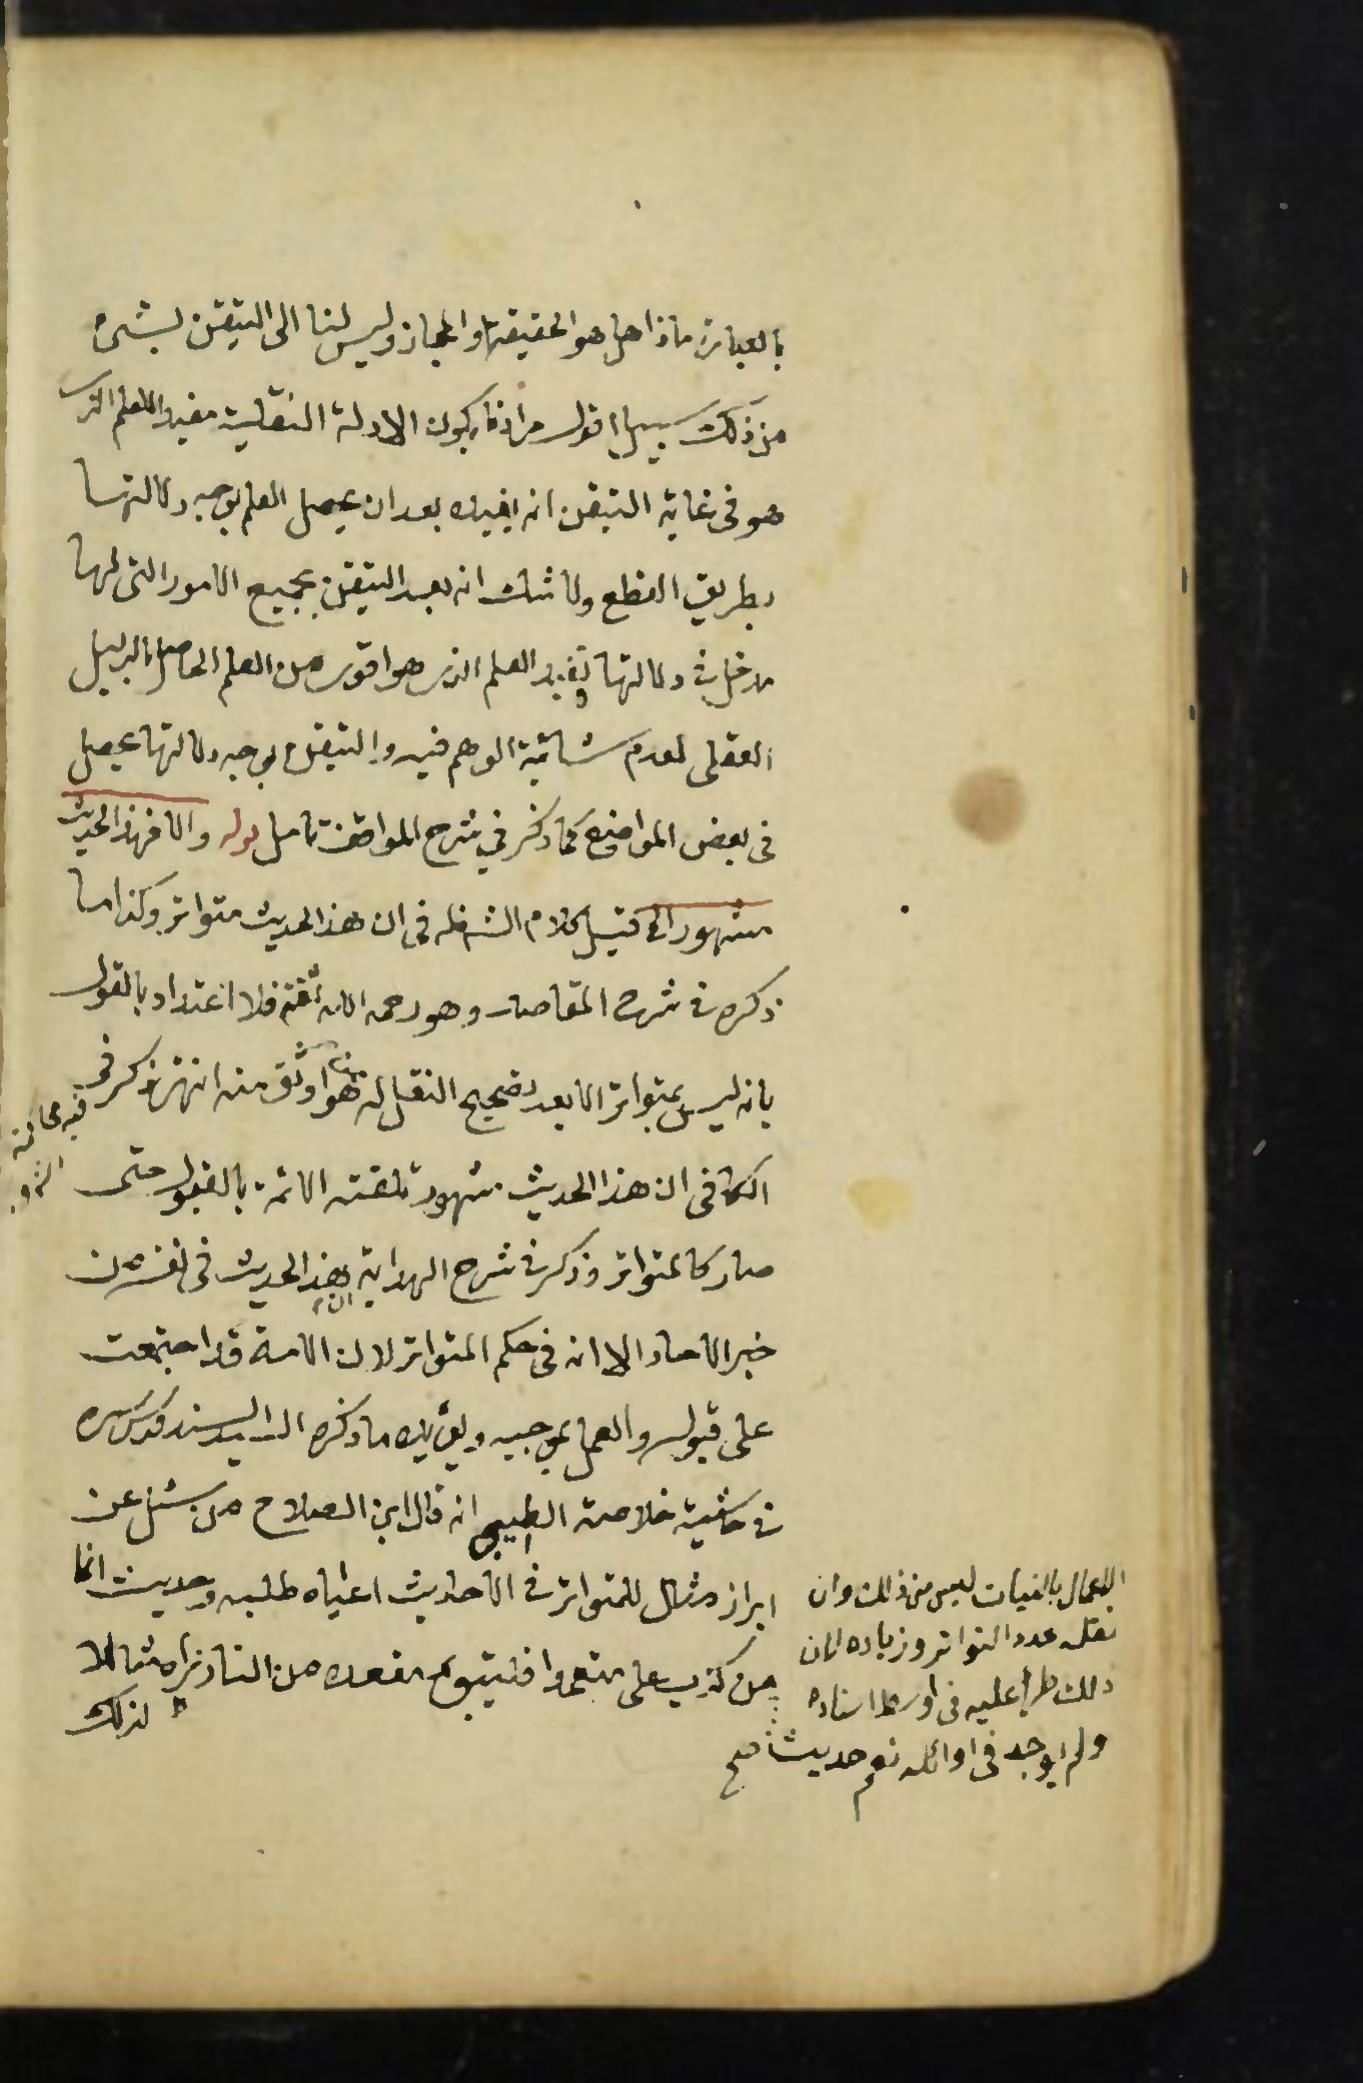 بالعبارة ماذا هل هو الحقيقة او المجاز وليس لنا الى التيقن بشىء
من ذلك سبيل اقول مرادنا بكون الادلة النقلية مفيدا للعلم الذى
هو فى غاية التيقن انه يفيده بعد ان يحصل العلم بوجه دلالتها
بطريق القطع ولا شك انه بعد التيقن بجميع الامور التى لها
مدخل فى دلالتها تفيد العلم الذى هو اقوى من العلم الحاصل بالدليل
العقلى لعدم شائبة الوهم فيه والتيقن بوجه دلالتها يحصل
فى بعض المواضع كما ذكر في شرح المواقف تأمل قوله والا فهذا الحديث
مشهور الخ قيل كلام الش ظ فى ان هذا الحديث متواتر وكذا ما
ذكره فى شرح المقاصد وهو رحمه الله ثقة فلا اعتداد بالقول
بانه ليس بمتواتر الا بعد تصحيح النقل له هو اوثق منه انتهى ذكر فى
الكافى ان هذا الحديث مشهور تلقته الائمة بالقبول حتى
صار كالمتواتر وذكر فى شرح الهداية ان هذا الحديث فى نفسه من
خبر الاحاد الا انه فى حكم المتواتر لان الامة قد اجتمعت
على قبوله والعمل بموجبه ويؤيده ما ذكره السيد السند قدس سره
فى حاشية خلاصة الطيبى انه قال ابن الصلاح من سئل عن
ابراز مثال للمتواتر فى الاحاديث اعياه طلبه وحديث انما
الاعمال بالنيات ليس من ذلك وان
نقله عدد التواتر وزيادة لان
ذلك طرأ عليه فى اوسط اسناده
ولم يوجد فى اوائله نعم حديث صح
من كذب على متعمدا فليتبوأ مقعده من النار نراه مثالا
لذلك